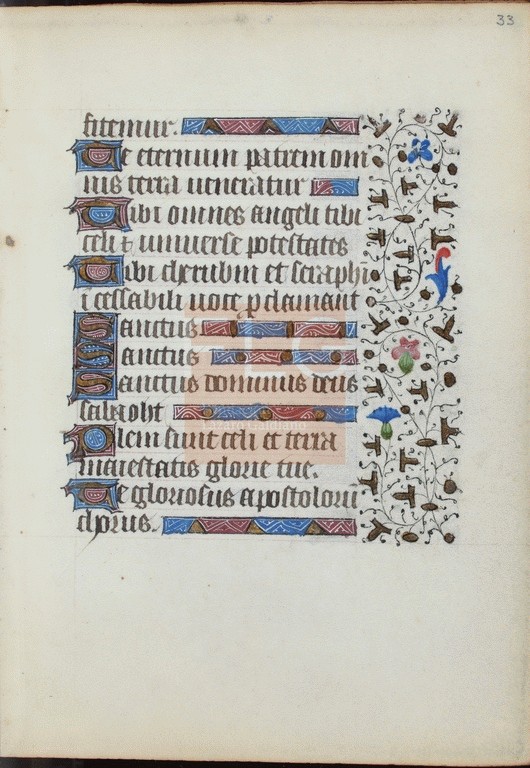 33
fitemur.
Te eternum patrem om
nis terra ueneratur
Tibi omnes angeli tibi
celi ⁊ uniuerse potestates
Tibi cherubin et seraphi
i cessabili uoce ꝓclamant
Sanctus
Sanctus
Sanctus dominus deus
sabaoht
Pleni sunt celi et terra
maiestatis glorie tue.
Te gloriosus apostoloru
chorus.
FLG
Lázaro Galdiano